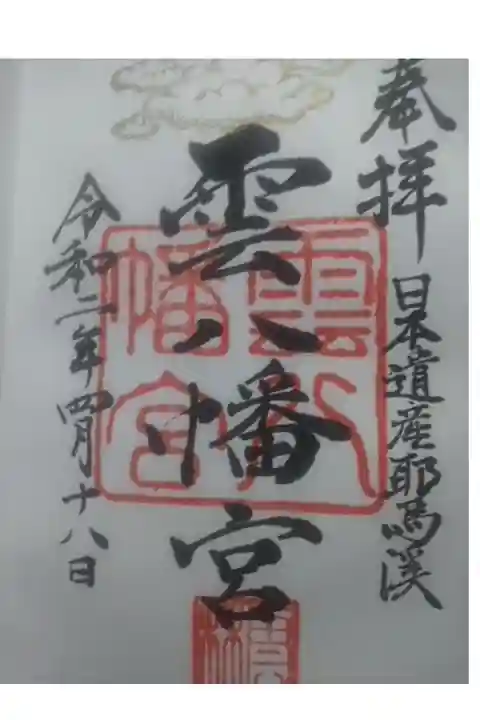 奉拝
日本遺産耶馬溪
雲八幡宮
雲八
幡宮
令和二年四月十八日